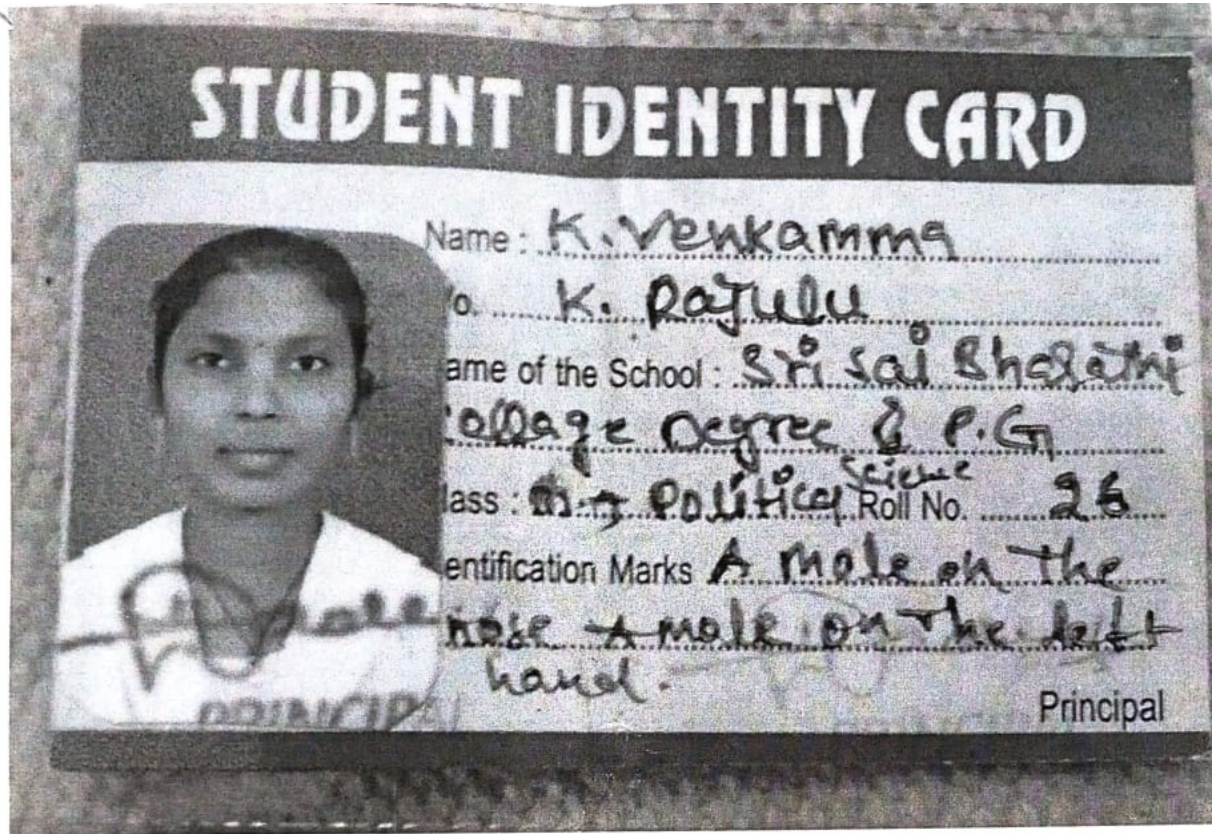 STUDENT IDENTITY CARD
Name : K. Venkamma
/o. K. Rajulu
ame of the School : Sri Sai Bharathi
collage Degree & P.G
lass : M.A Political Science Roll No. 26
entification Marks A mole on the
nose A mole on the left
hand.
Principal
PRINCIPAL